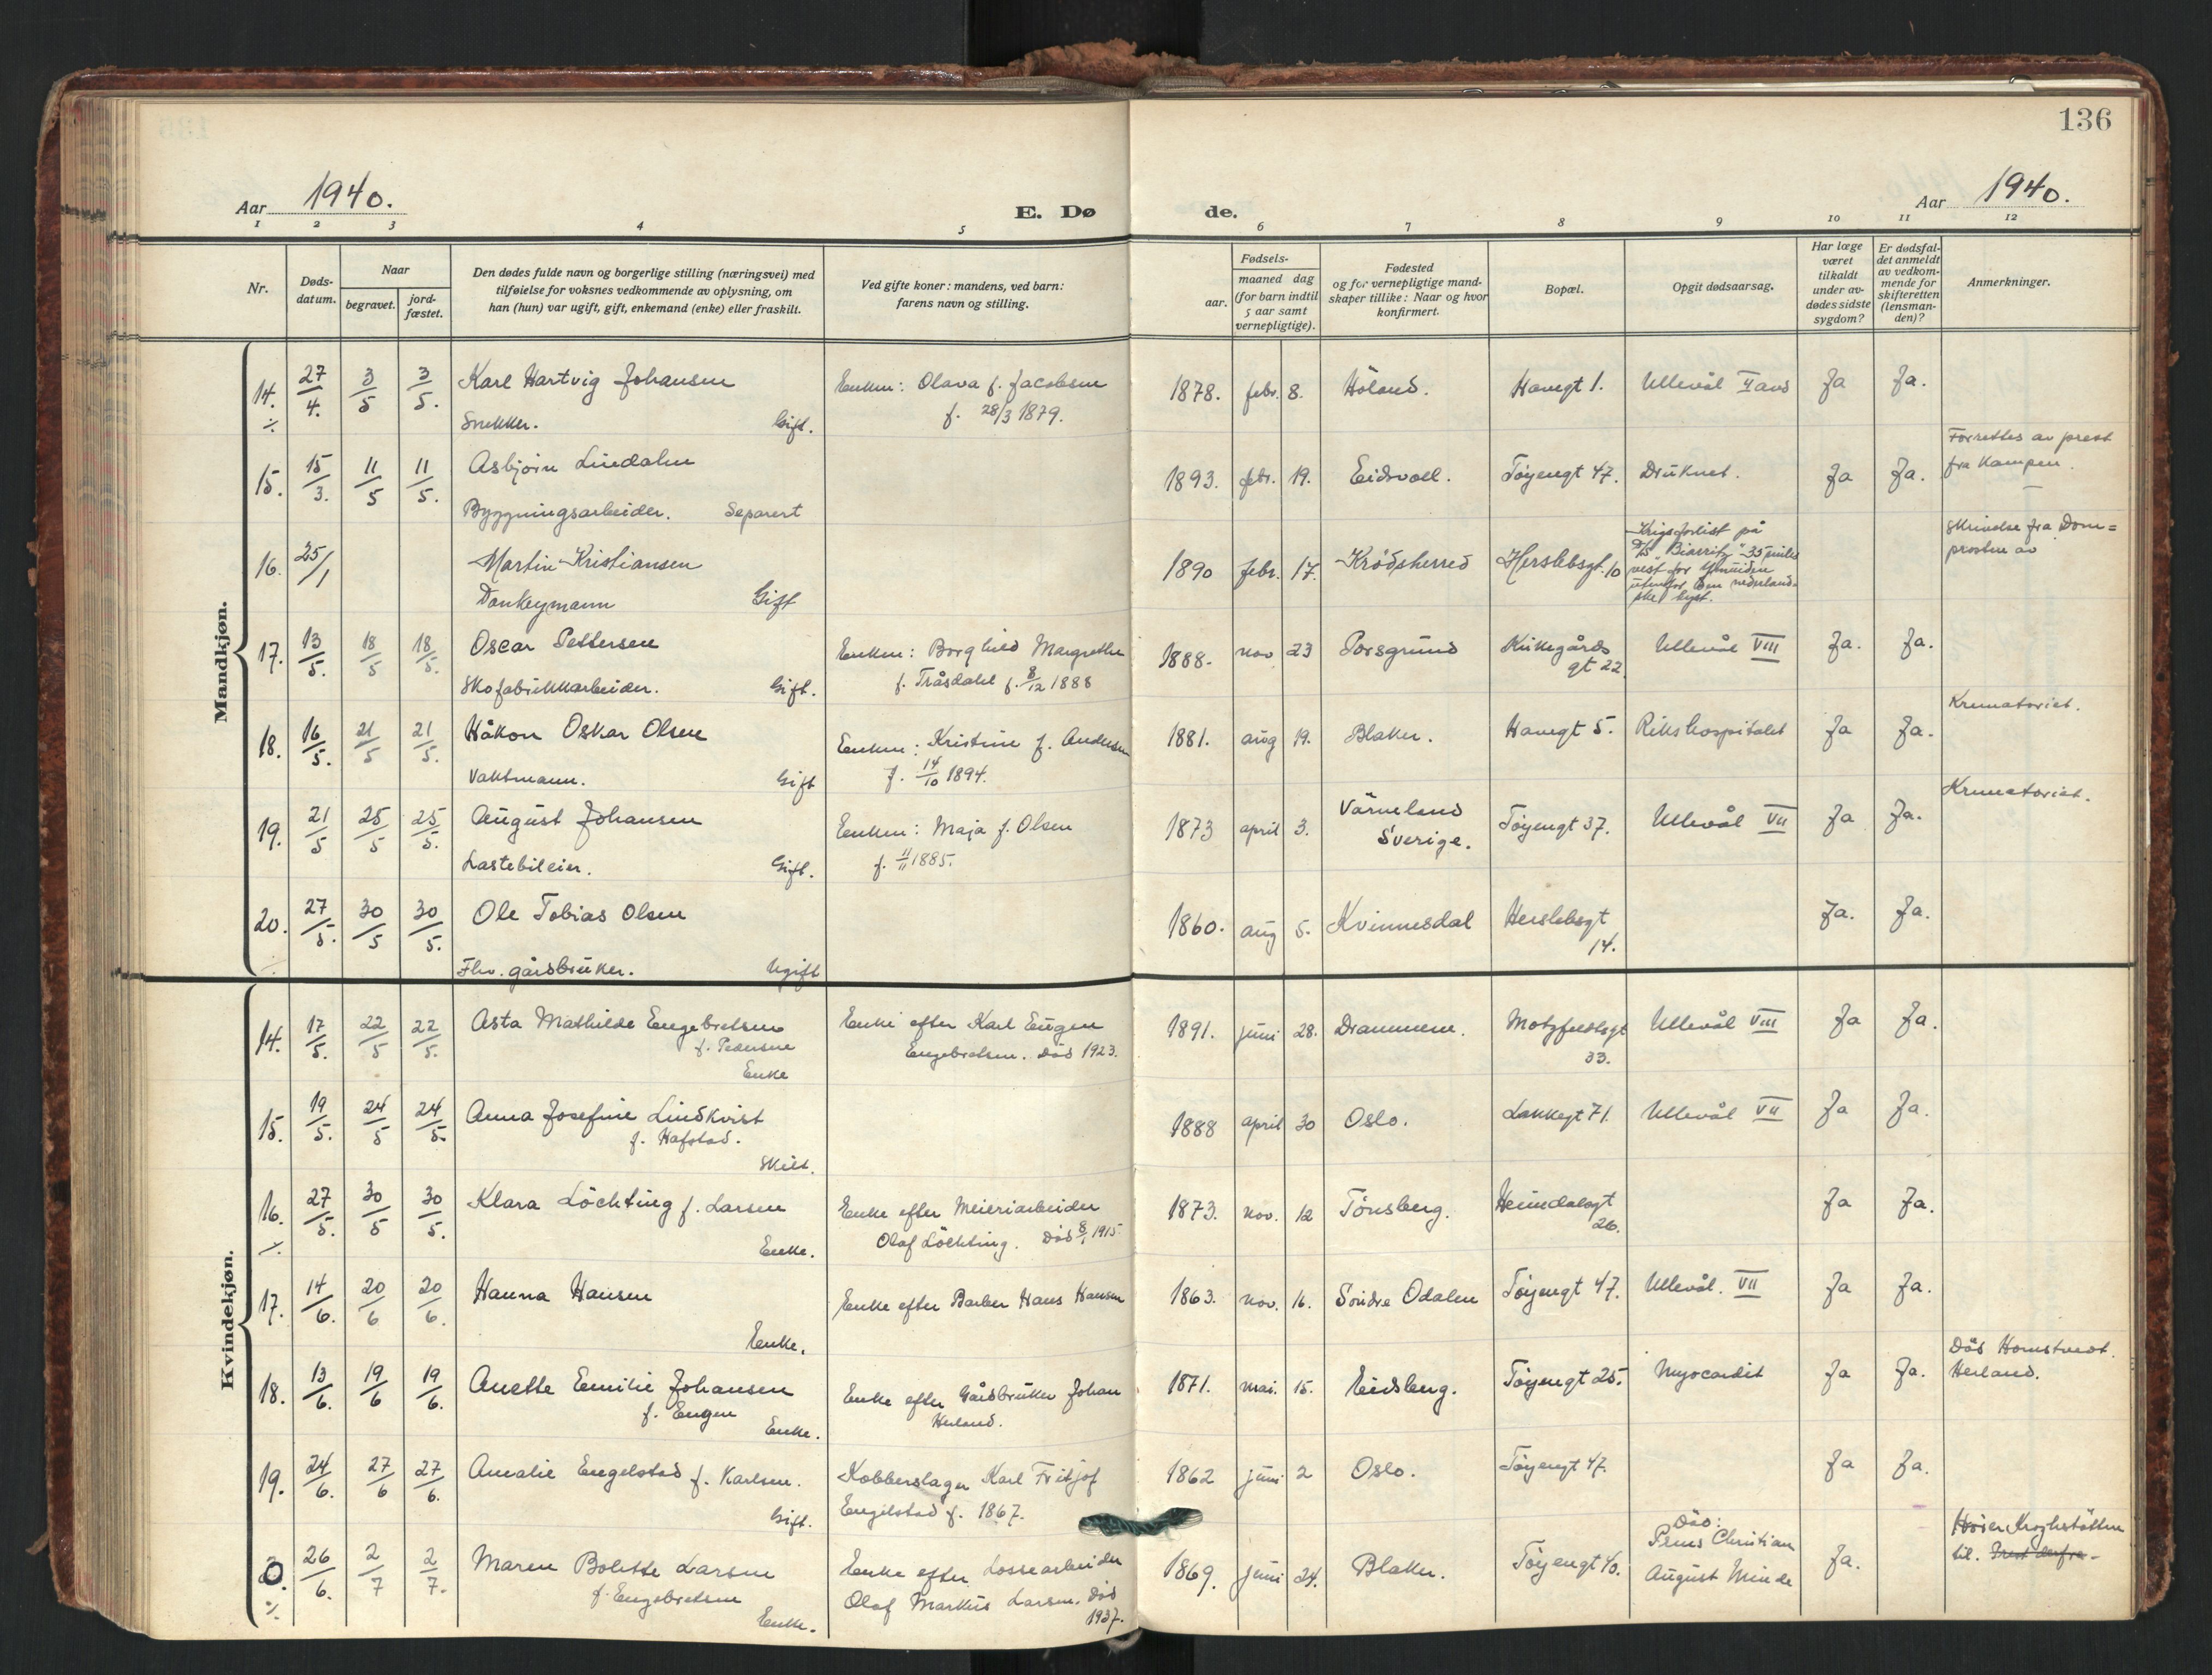 136
Aar 1940.
E. Dø
de.
Aar 1940.
1 2 3 4 5 6 7 8 9 10 11 12
Nr.
Døds-
datum.
Naar
begravet.
jord-
fæstet.
Den dødes fulde navn og borgerlige stilling (næringsvei) med
tilføielse for voksnes vedkommende av oplysning, om
han (hun) var ugift, gift, enkemand (enke) eller fraskilt.
Ved gifte koner: mandens, ved barn:
farens navn og stilling.
Fødsels-
aar.
maaned dag
(for barn indtil
5 aar samt
vernepligtige).
Fødested
og for vernepligtige mand-
skaper tillike: Naar og hvor
konfirmert.
Bopæl.
Opgit dødsaarsag.
Har læge
været
tilkaldt
under av-
dødes sidste
sygdom?
Er dødsfal-
det anmeldt
av vedkom-
mende for
skifteretten
(lensman-
den)?
Anmerkninger.
Mandkjøn.
14. 27/4. 3/5 3/5. Karl Hartvig Johansen Enken: Olava f. Jacobsen 1878. febr. 8. Höland. Havegt 1. Ullevål II avd Ja Ja.
Snekker. Gift. f. 28/3 1879.
15. 15/3. 11/5 11/5. Asbjörn Lindalen 1893. febr. 19. Eidsvoll. Töyengt 47. Druknet. Ja Ja. Forrettes av prest
fra Kampen.
Bygningsarbeider. Separert
16. 25/1 Martin Kristiansen 1890 febr. 17. Krödsherred Herslebsgt. 10 Krigsforlist på
D/S "Biarritz" 35 miles
vest for Ymuiden
utenfor den nederland-
ske kyst.
Skrivelse fra Dom=
prosten av
Donkeymann Gift
17. 13/5. 18/5 18/5. Oscar Pettersen Enken: Borghild Margrethe 1888. nov 23 Porsgrund Kirkegårds Ullevål VIII Ja. Ja.
gt 22.
Skofabrikkarbeider. Gift. f. Tråsdahl f. 8/12 1888
18. 16/5. 21/5 21/5. Håkon Oskar Olsen Enken: Kristine f. Andersen 1881. aug 19. Blaker. Havegt 5. Rikshospitalet Ja Ja. Krematoriet.
Vaktmann. Gift f. 14/10 1894.
19. 21/5 25/5 25/5. August Johansen Enken: Maja f. Olsen 1873 april 3. Värmeland Töyengt 37. Ullevål VII Ja Ja. Krematoriet.
Sverige.
Lastebileier. Gift. f. 11/11 1885.
20. 27/5. 30/5 30/5. Ole Tobias Olsen 1860. aug 5. Kvinnesdal Herslebsgt Ja. Ja.
14.
Fhv. gårdbruker. Ugift
Kvindekjøn.
14. 17/5. 22/5 22/5. Asta Mathilde Engebretsen Enke efter Karl Eugen 1891. juni 28. Drammen. Motzfeldtsgt Ullevål VIII Ja Ja.
33.
f. Pedersen Engebretsen. Död 1923.
Enke
15. 19/5. 24/5 24/5. Anna Josefine Lindkvist 1888 april 30 Oslo. Lakkegt 71. Ullevål VII Ja Ja.
f. Hafstad.
Skilt.
16. 27/5. 30/5 30/5. Klara Löchting f. Larsen Enke efter Meieriarbeider 1873. nov. 12 Tönsberg. Heimdalsgt Ja Ja.
26.
Enke. Olaf Löchting. Död 8/1 1915.
17. 14/6. 20/6 20/6. Hanna Hansen Enke efter Barber Hans Hansen 1863. nov. 16. Söndre Odalen Töyengt 47. Ullevål. VII Ja Ja.
Enke.
18. 13/6. 19/6 19/6. Anette Emilie Johansen Enke efter Gårdbruker Johan 1871. mai. 15. Eidsberg. Töyengt 25. Myocardit Ja Ja. Död Homstvedt.
Herland.
f. Eugen Herland.
Enke.
19. 24/6. 27/6 27/6. Amalie Engelstad f. Karlsen. Kobberslager Karl Fritjof 1862 juni 2 Oslo. Töyengt 47. Ja Ja.
Gift. Engelstad f. 1867.
20. 26/6. 2/7 2/7. Maren Bolette Larsen Enke efter Lossearbeider 1869. juni 24. Blaker. Töyengt 40. Död:
Prins Christian
August Minde
Ja.
Kroghstötten
til.
f. Engebretsen Olaf Markus Larsen. Död
1937.
Enke.